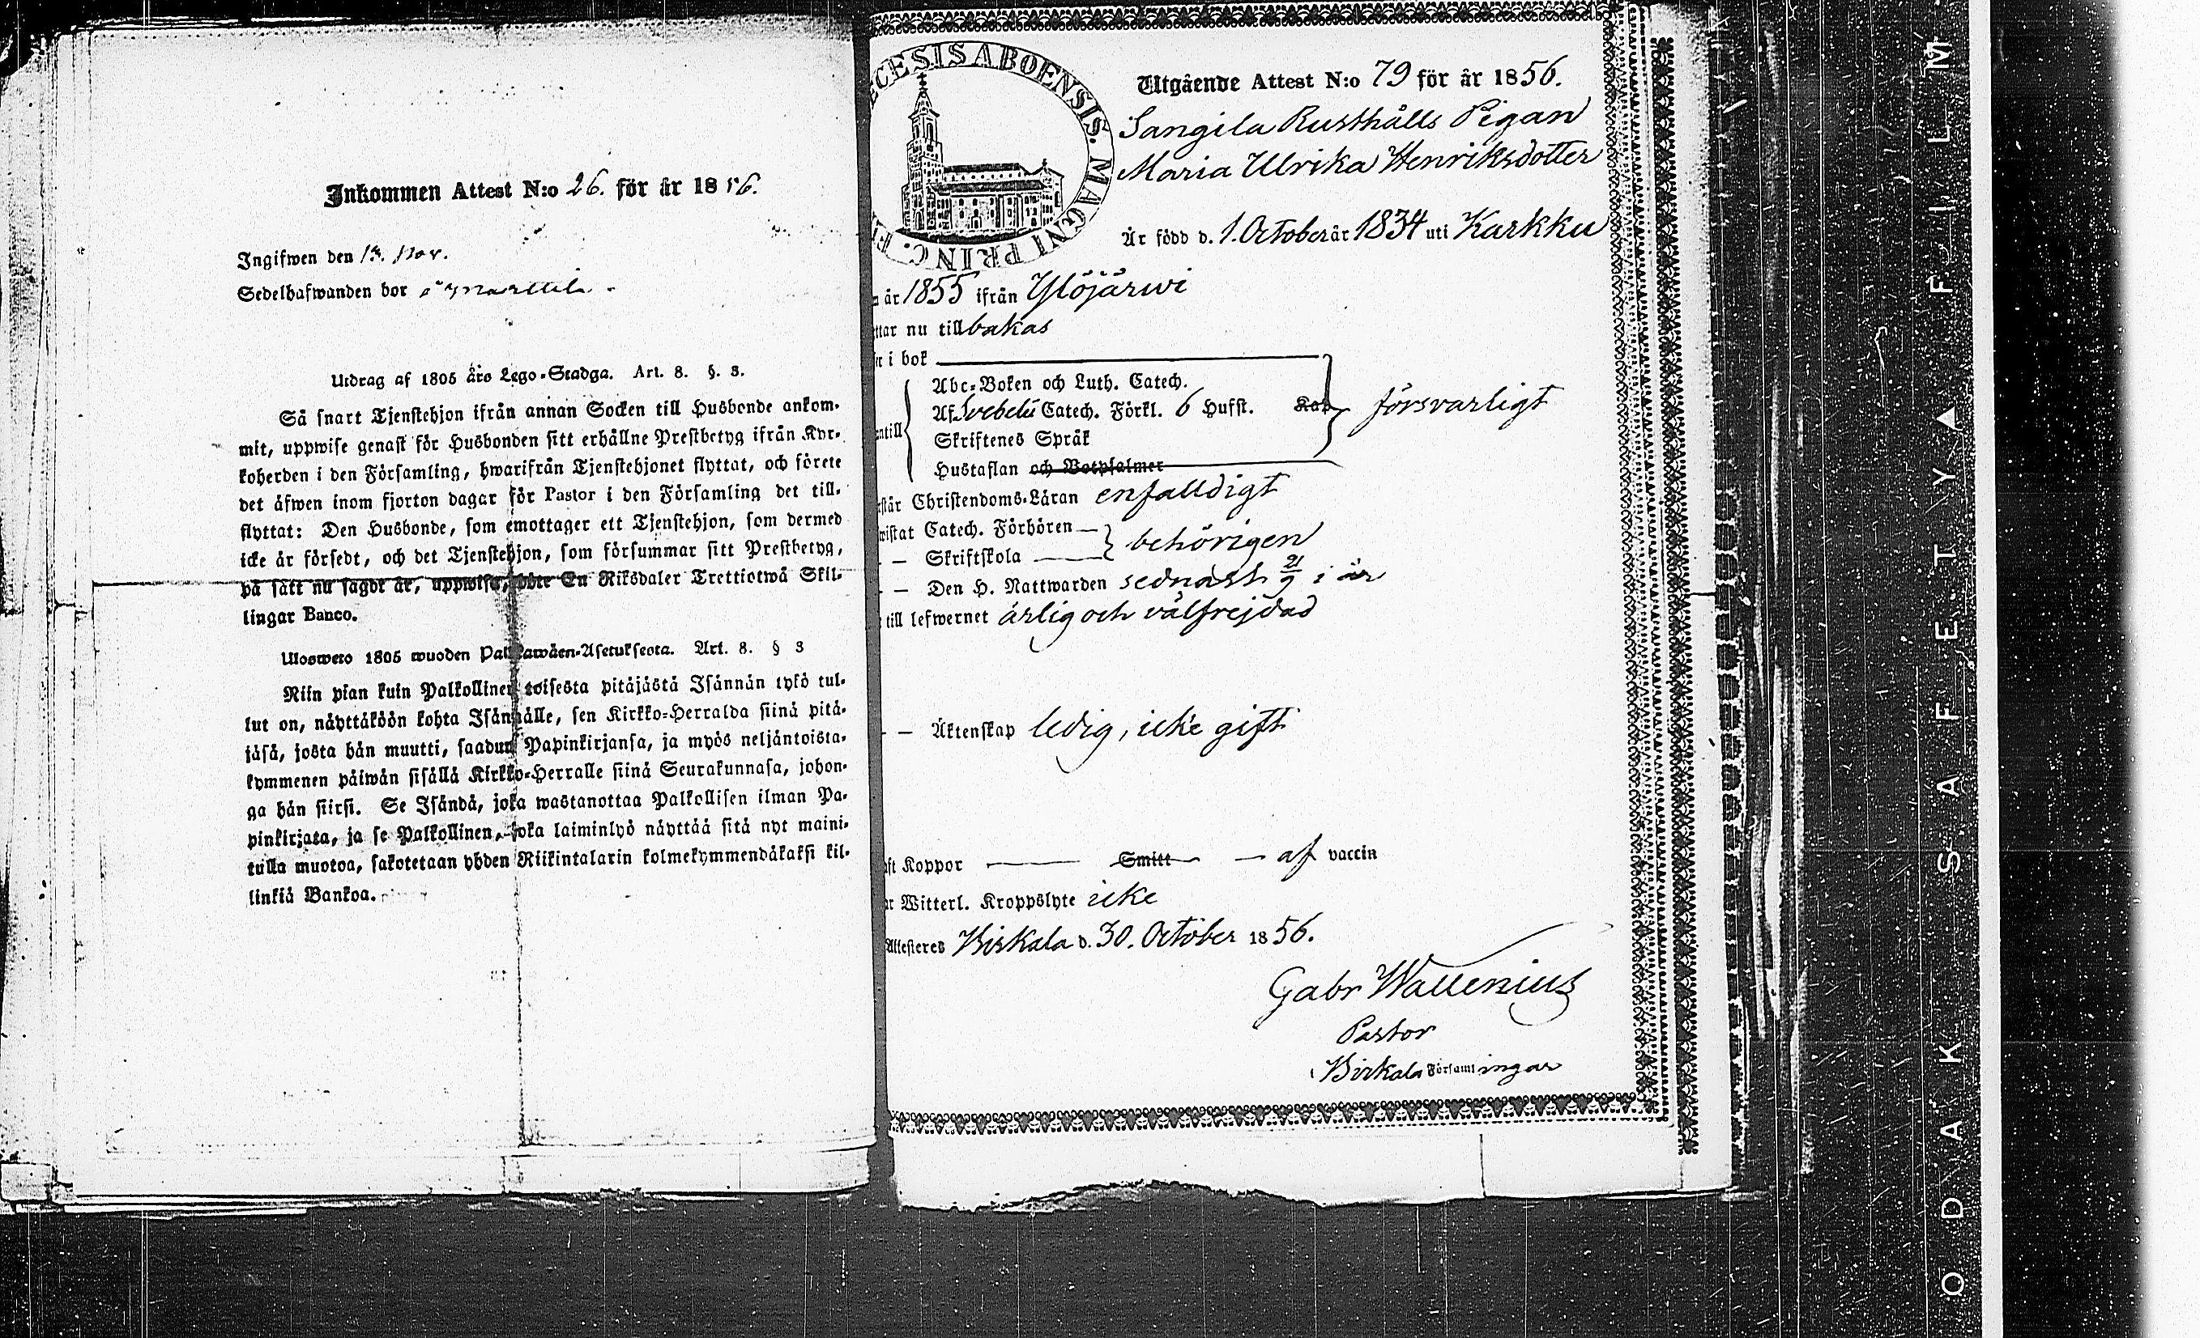 Inkommen Attest N:o 26. för år 1856.
Ingifwen den 13. Nov.
Sedelhafwanden bor
Utdrag af 1805 års Lego-Stadga. Art. 8. §. 3.
Så snart Tjenstehjon ifrån annan Socken till Husbonde ankom-
mit, uppwise genast för Husbonden sitt erhållne Prestbetyg ifrån Kyr-
koherden i den Församling, hwarifrån Tjenstehjonet flyttat, och förete
det äfwen inom fjorton dagar för Pastor i den Församling det till-
flyttat: Den Husbonde, som emottager ett Tjenstehjon, som dermed
icke är försedt, och det Tjenstehjon, som försummar sitt Prestbetyg,
på sätt nu sagdt är, uppwisa, böte En Riksdaler Trettiotwå Skil-
lingar Banco.
Ulosweto 1805 wuoden Palkkawäen-Asetuksesta. Art. 8. § 3
Niin pian kuin Palkollinen toisesta pitäjästä Isännän tykö tul-
lut on, näyttäköön kohta Isännälle, sen Kirkko-Herralda siinä pitä-
jäsä, josta hän muutti, saadun Papinkirjansa, ja myös neljäntoista-
kymmenen päiwän sisällä Kirkko-Herralle siinä Seurakunnasa, johon-
ga hän siirsi. Se Isändä, joka wastanottaa Palkollisen ilman Pa-
pinkirjata, ja se Palkollinen, joka laiminlyö näyttää sitä nyt maini-
tulla muotoa, sakotetaan yhden Riikintalarin kolmekymmendäkaksi kil-
linkiä Bankoa.
CESIS ABOENSIS. MAGNI PRINC. F
Utgående Attest N:o 79 för år 1856.
Sangila Rusthålls Pigan
Maria Ulrika Henriksdotter
Är född d. 1. October år 1834 uti Karkku
år 1855 ifrån Ylöjärwi
ttar nu till bakas
i bok
Abc-Boken och Luth. Catech.
Af Svebelii Catech. Förkl. 6 Hufst. Kap försvarligt
ntill
Skriftenes Språk
Hustaflan och Botpsalmer
rstår Christendoms-Läran enfalldigt
wistat Catech. Förhören
— Skriftskola behörigen
— Den H. Nattwarden sednast 21/9 i år
till lefwernet ärlig och välfrejdad
— Äktenskap ledig, icke gift
ft Koppor Smitt af vaccin
r Witterl. Kroppslyte icke
Attesteres Birkala d. 30. October 1856.
Gabr Wallenius
Pastor
i Birkala Församlingar
KODAK SAFETY ▲ FILM